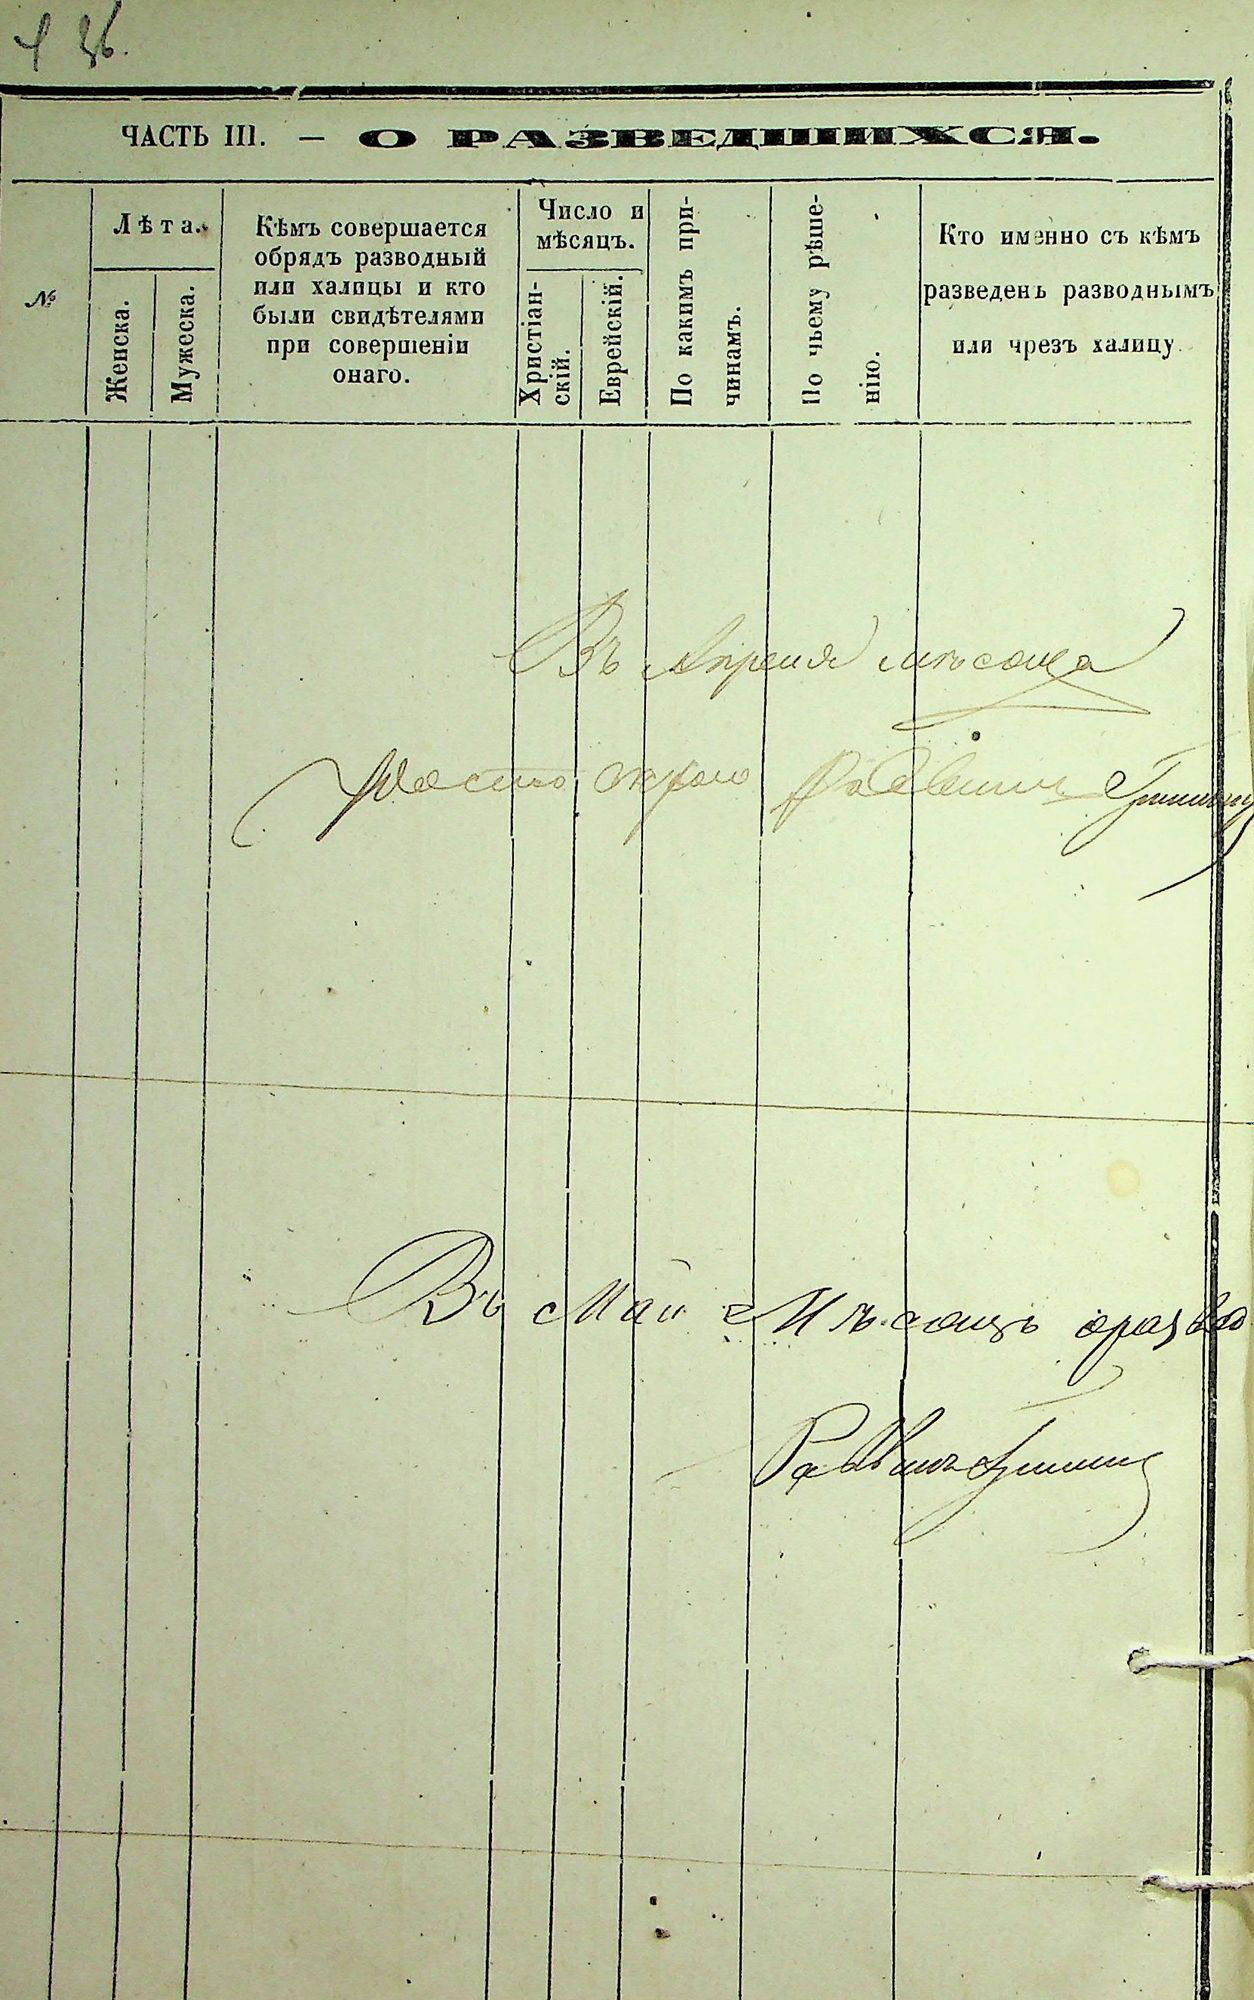 ЧАСТЬ III. — О РАЗВЕДШИХСЯ.
№
Лѣта.
Женска.
Мужеска.
Кѣмъ совершается
обрядъ разводный
или халицы и кто
были свидѣтелями
при совершеніи
онаго.
Число и
мѣсяцъ.
Христіан-
скій.
Еврейскій.
По какимъ при-
чинамъ.
По чьему рѣше-
нію.
Кто именно съ кѣмъ
разведенъ разводнымъ
или чрезъ халицу
Въ Апреля мѣсоца
Раввинъ
Въ Май Мѣсоцъ
Раввинъ